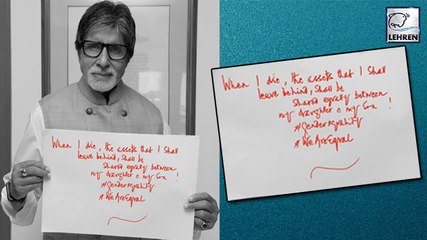 LEHREN
When I die, the assets that I shall
leave behind, shall be
shared equally between
my daughter & my son !
#genderequality
#WeAreEqual
When I die, the assets that I shall
leave behind, shall be
shared equally between
my daughter & my son !
#genderequality
#WeAreEqual